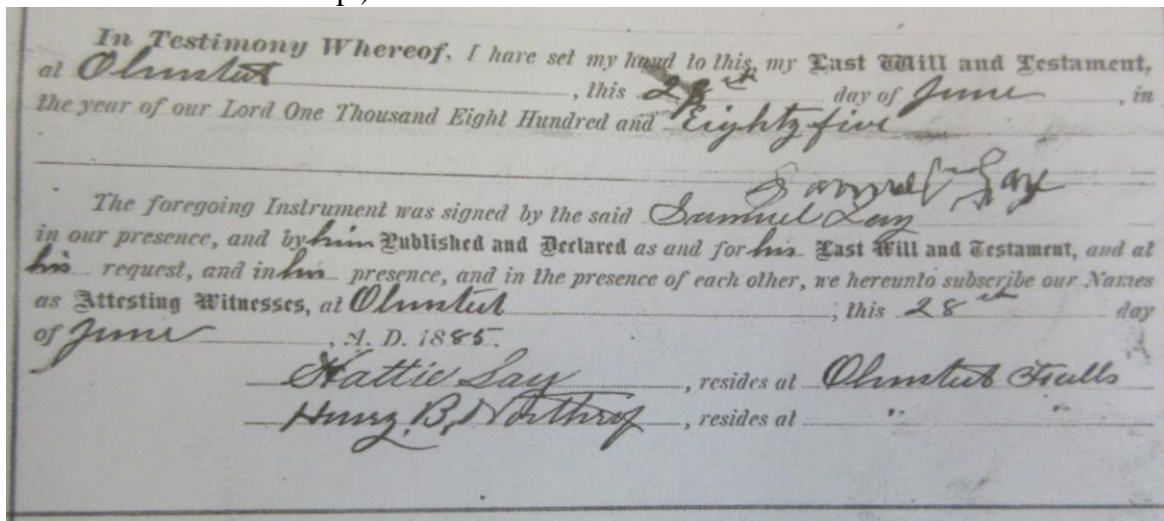 In Testimony Whereof, I have set my hand to this, my Last Will and Testament,
at Olmsted, this 28th day of June, in
the year of our Lord One Thousand Eight Hundred and Eighty five
Samuel Lay
The foregoing Instrument was signed by the said Samuel Lay
in our presence, and by him Published and Declared as and for his Last Will and Testament, and at
his request, and in his presence, and in the presence of each other, we hereunto subscribe our Names
as Attesting Witnesses, at Olmsted; this 28th day
of June, A. D. 1885.
Hattie Lay, resides at Olmsted Falls
Henry. B. Northrop, resides at " "